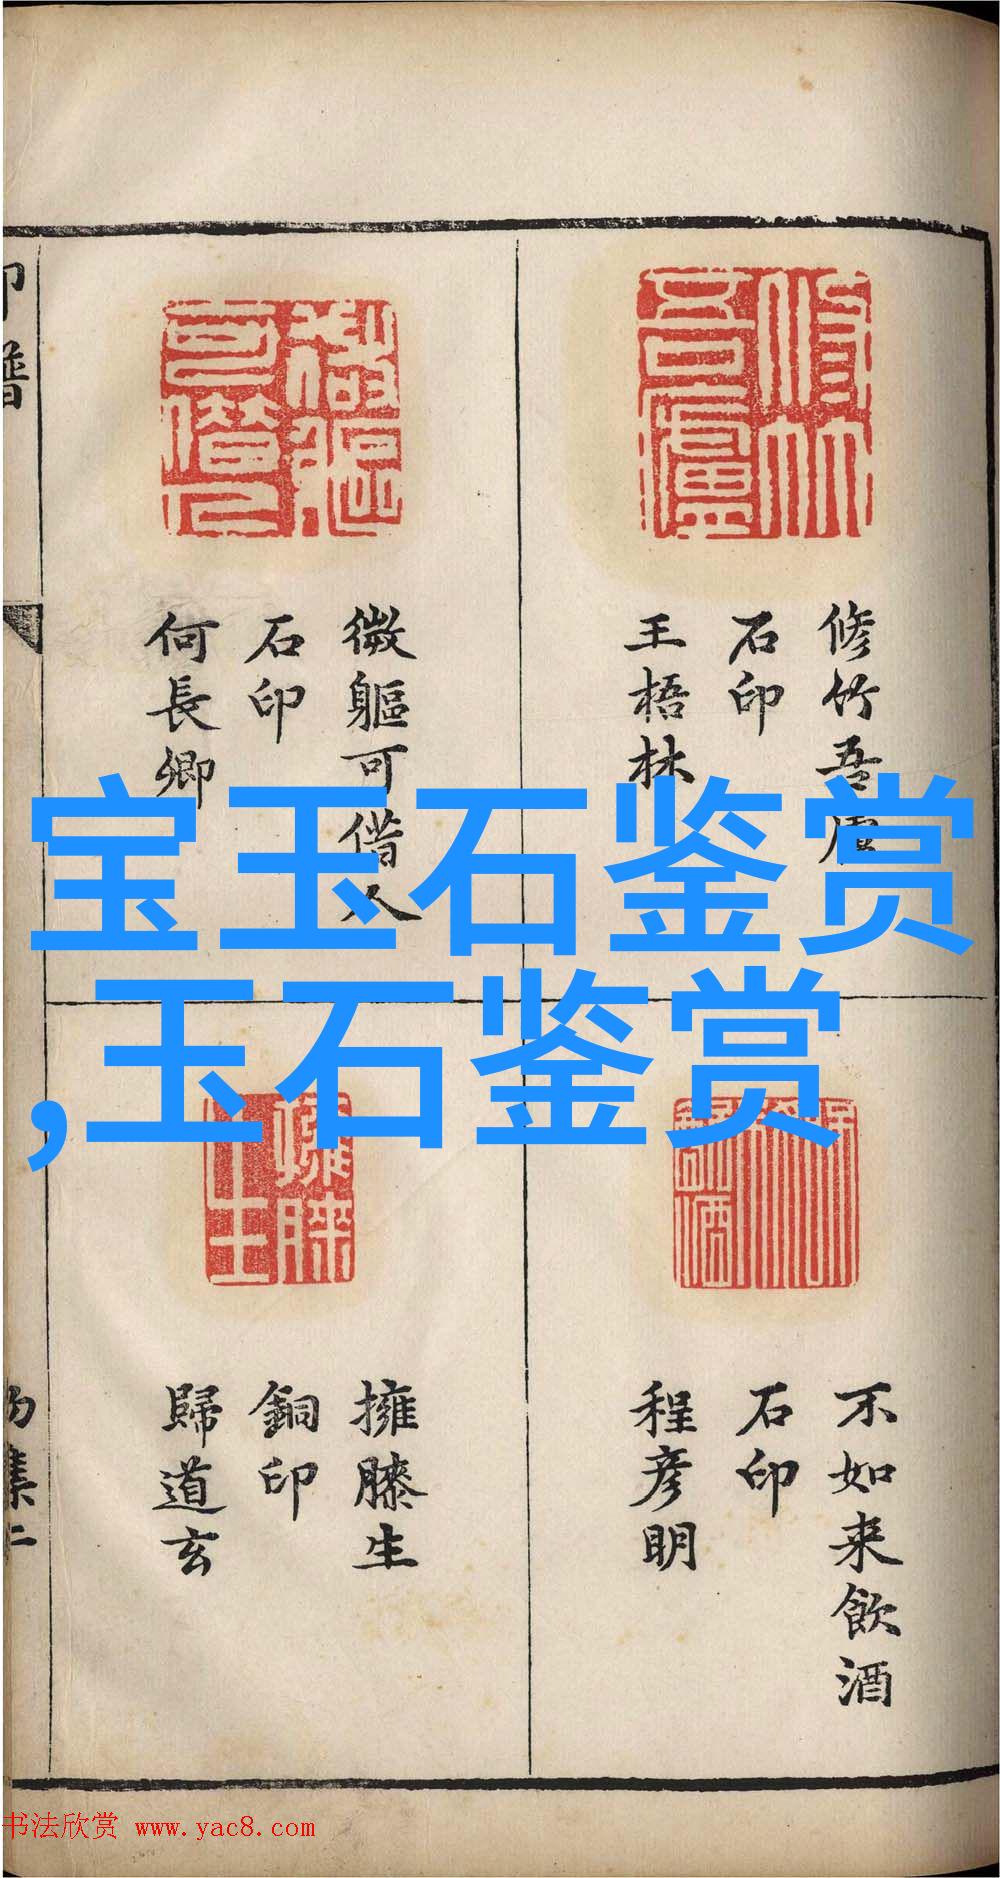 宝玉石鉴赏
,玉石鉴赏
修竹吾廬
石印
王梧林
微軀可借人
石印
何長卿
不如来飲酒
石印
程彦明
擁膝生
銅印
歸道玄
印譜
初集二
书法欣赏 www.yac8.com